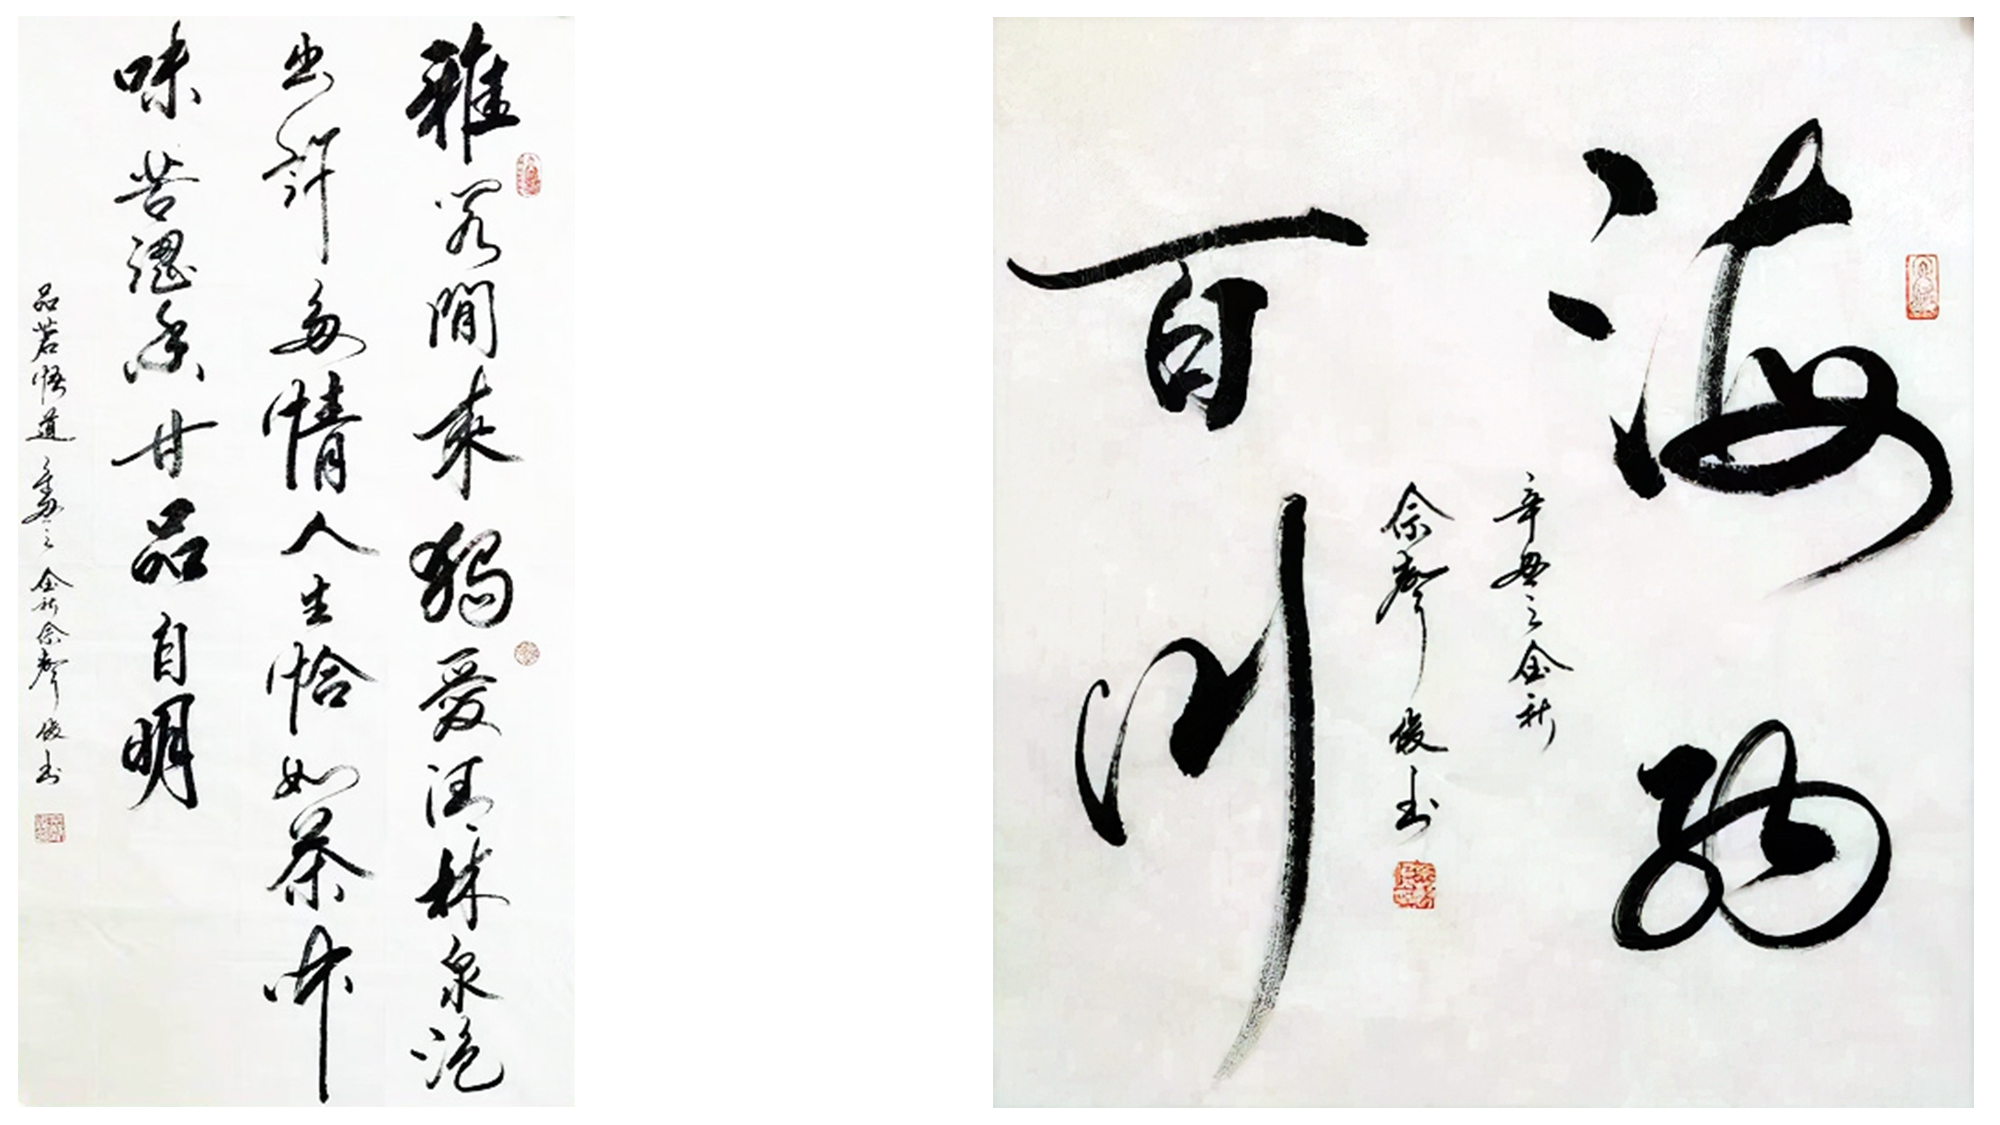 雅客閒來獨愛清林泉泡
出許多情人生恰如茶中
味苦澀香甘品自明
品茗悟道 辛丑之金秋佘俊书
海纳
辛丑之金秋
佘俊书
百川